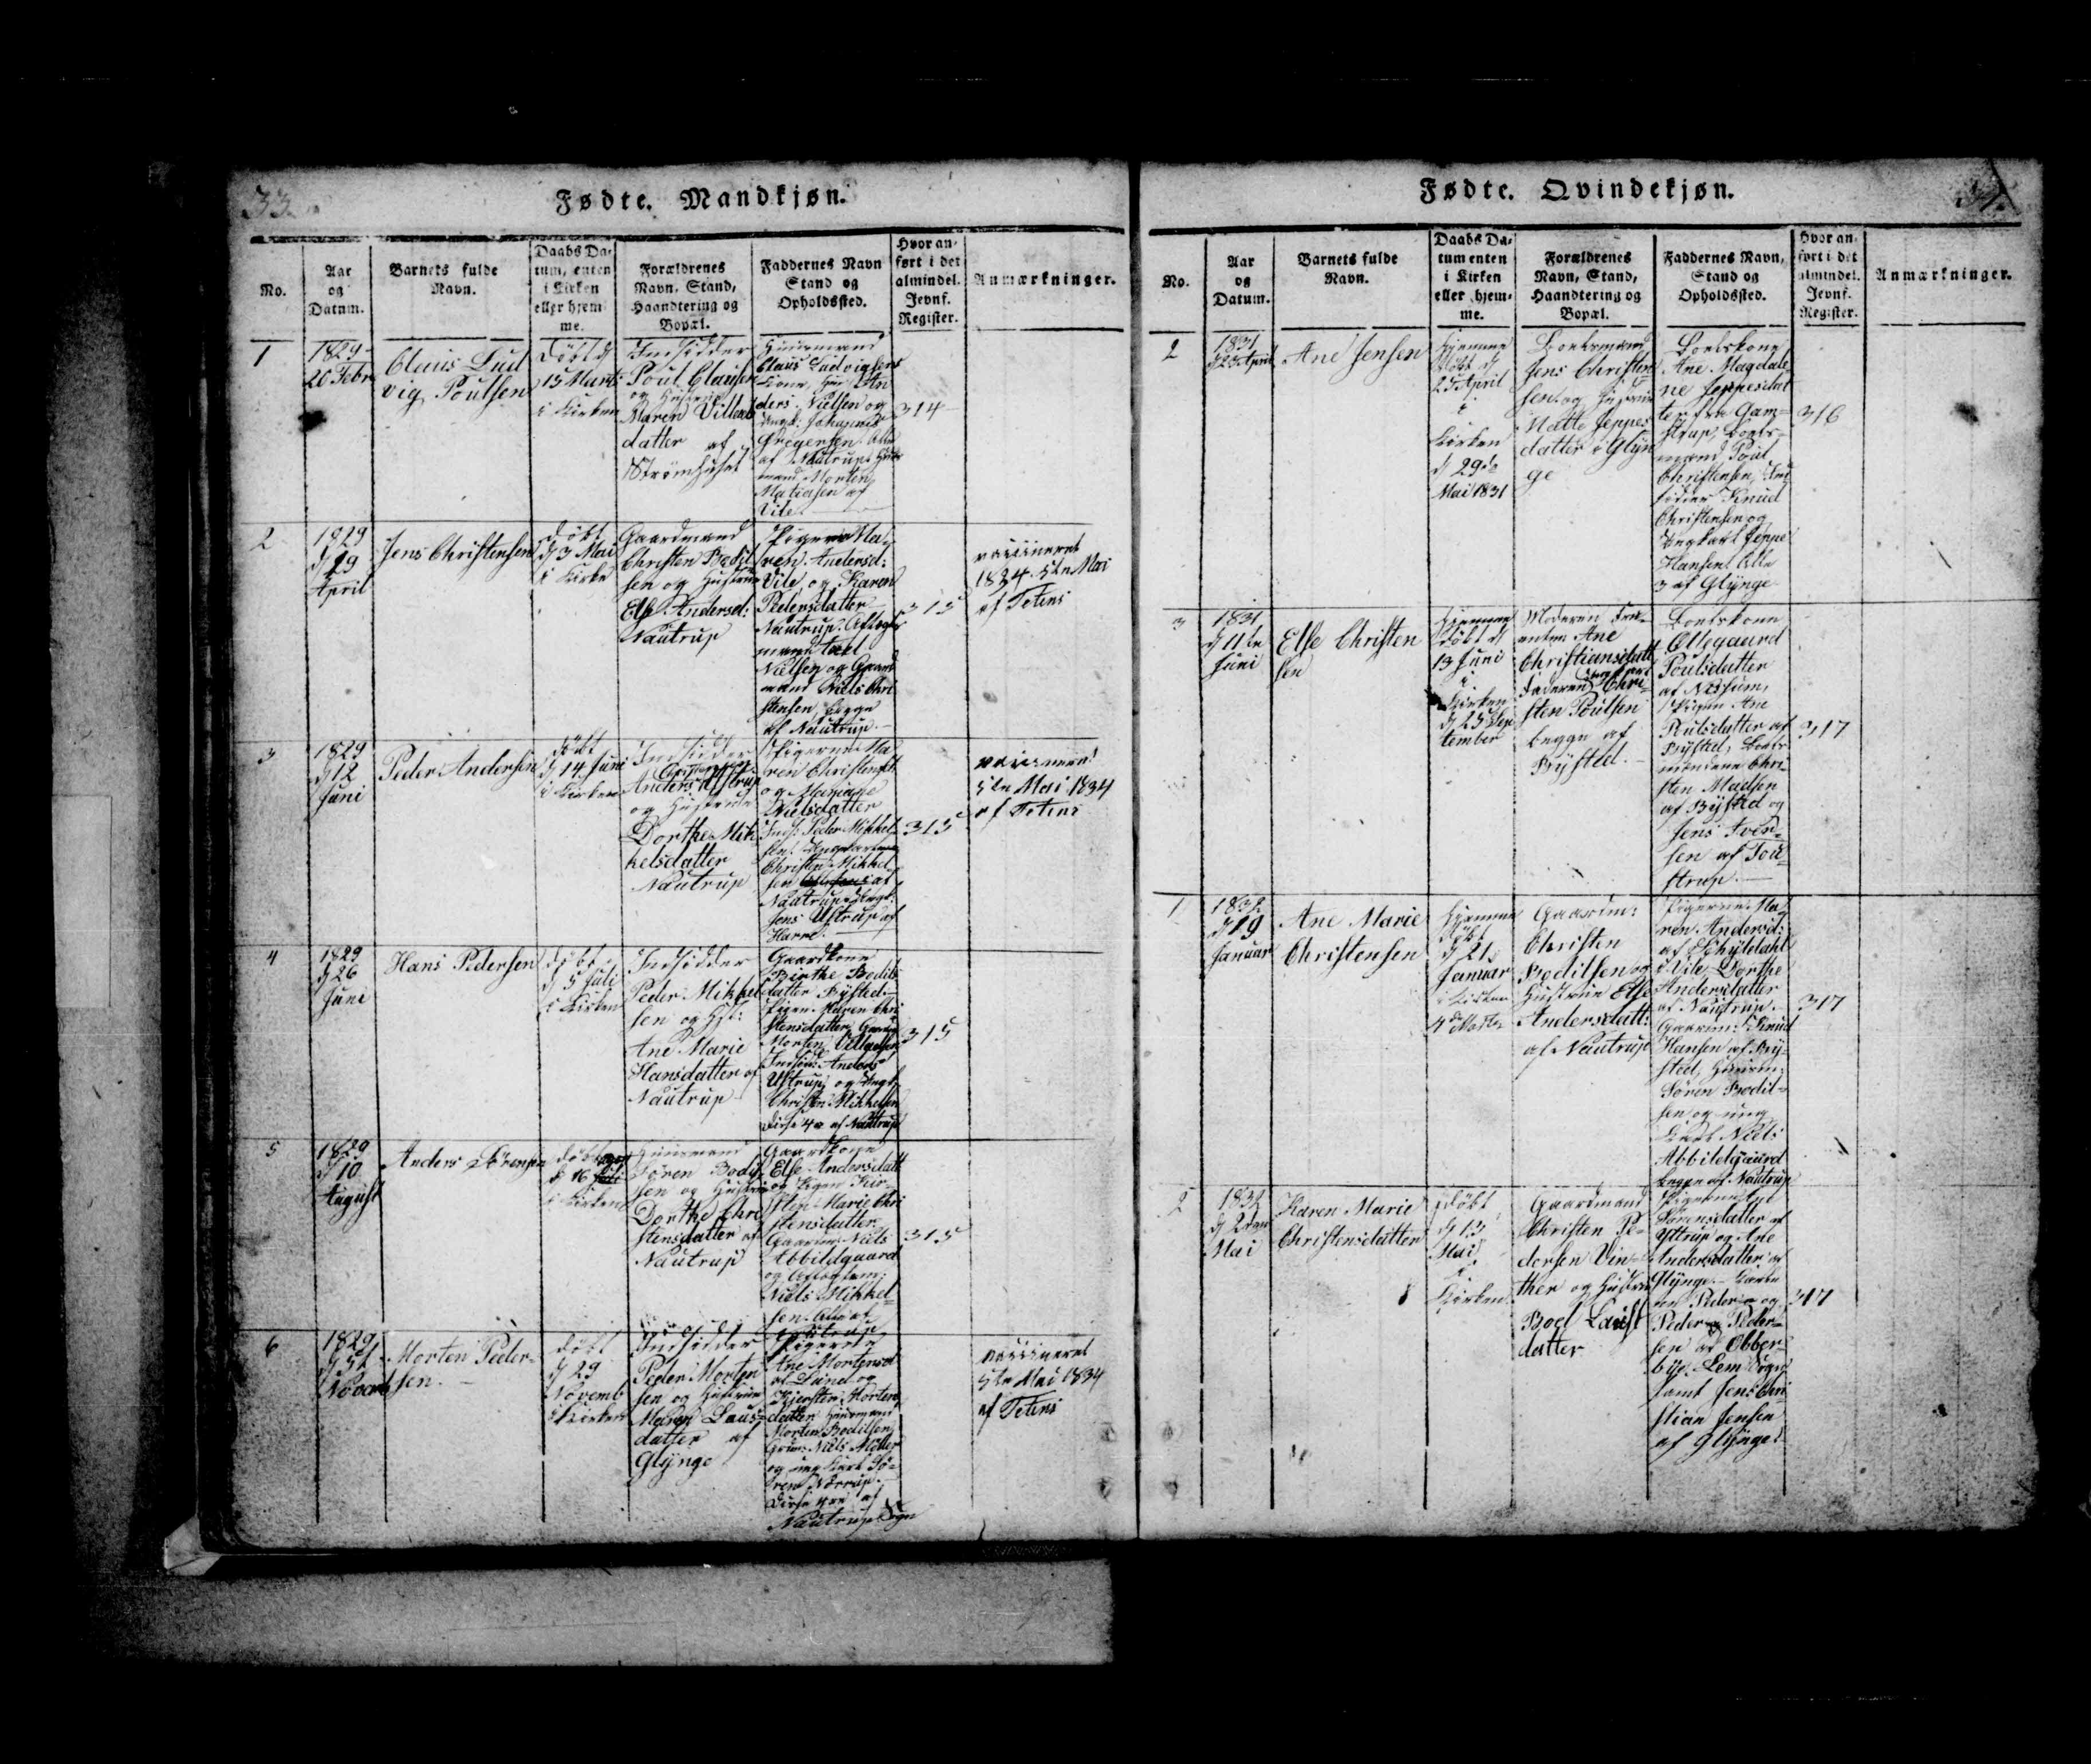 33.
Fødte. Mandkjøn.
No.
Aar
og
Datum.
Barnets fulde
Navn.
Daabs Da-
tum, enten
i Kirken
eller hjem
me.
Forældrenes
Navn, Stand,
Haandtering og
Bopæl.
Faddernes Navn
Stand og
Opholdssted.
Hvor an-
ført i det
almindel.
Jevnf.
Register.
Anmærkninger.
1
1829
20 Febr
Claus Lud
vig Poulsen
Døbt d
15 Marts
i Kirken
Indsidder
Poul Clausen
og Hustrue
Maren Villads
datter af
Strømhuset
Huusmand
Claus Ludvigsens
Kone,
ders Nielsen og
Johannes
Gregersen Alle
af Nautrup
mand Morten
Matiasen af
Vile
314
2
1829
d 19
April
Jens Christensen
døbt
d 3 Mai
i Kirke
Gaardmand
Christen Bodil
sen og Hustrue
Else Andersd:
Nautrup
Pigerne Ma-
ren Andersd:
Vile og Karen
Pedersdatter
Nautrup. Aftægts
mand
Nielsen og Gaard
mand Niels Chri
stensen, begge
af Nautrup.
315
vaccineret
1834 5te Mai
af Tetens
3
1829
d 12
Juni
Peder Andersen
døbt
d 14 Juni
i Kirken
Indsidder
Christensen
Anders Ustrup
og Hustrue
Dorthe Mik
kelsdatter
Nautrup
Pigerne Ma-
ren Christensd.
og Mariane
Nielsdatter
Inds: Peder Mikkel
sen. Ungkarlene
Christen Mikkel
sen af
Nautrup
Jens Ustrup af
Harre.
315
vaccineret
5te Mai 1834
af Tetens
4
1829
d 26
Juni
Hans Pedersen
døbt
d 5 Juli
i Kirken
Indsidder
Peder Mikkel
sen og Hst:
Ane Marie
Hansdatter af
Nautrup
Gaardkone
Birthe Bodils
datter Bysted
Pigen Karen Chri
stensdatter, Gaardm
Morten Villadsen
Indsid: Anders
Ustrup og Ungk.
Christen Mikkelsen
disse 4 af Nautrup
315
5
1829
d 10
August
Anders Sörensen
døbt
d 16
i Kirken
Huusmand
Søren Bodil
sen og Hustrue
Dorthe Chri
stensdatter af
Nautrup
Gaardkone
Else Andersdatt
og Pigen Kir-
sten Marie Chri
stensdatter.
Gaardm: Niels
Abbildgaard
og Aftægtsm:
Niels Mikkel-
sen. Alle af
Nautrup
315
6
1829
d
Novemb
Morten Peder-
sen.
døbt
d 29
Novemb
i Kirken
Indsidder
Peder Morten
sen og Hustrue
Maren Laus-
datter af
Glynge
Pigerne
Ane Mortensd
af Lund og
Kjersten Morten
datter Huusmand
Morten Bodilsen
Niels Møller
og ung Karl Sö-
ren Nörrup.
disse af
Nautrup Sogn
vaccineret
5te Mai 1834
af Tetens
Fødte. Qvindekjøn.
34.
No.
Aar
og
Datum.
Barnets fulde
Navn.
Daabs Da-
tum enten
i Kirken
eller hjem-
me.
Forældrenes
Navn, Stand,
Haandtering og
Bopæl.
Faddernes Navn,
Stand og
Opholdssted.
Hvor an-
ført i det
almindel.
Jevnf.
Register.
Anmærkninger.
2
1831
d 23 April
Ane Jensen
Hjemme
døbt d
25 April
i
Kirken
d 29de
Mai 1831
Boelsmand
Jens Christen
sen og Hustrue
Mette Jeppes
datter i Glyn
ge
Boelskone
Ane Magdale
ne Jeppesdat
ter fra Gam-
strup, Boels-
mand Poul
Christensen, Ind
sidder Knud
Christensen og
Ungkarl Jeppe
Hansen Alle
3 af Glynge
316
3
1831
d 11te
Juni
Else Christen
sen
Hjemme
døbt d
13 Juni
i
Kirken
d 25 Sep
tember
Moderen Fru-
entim. Ane
Christiansdatt
Faderen Chri-
sten Poulsen
begge af
Bysted.
Boelskone
Ellegaard
Poulsdatter
af Nissum,
Pigen Ane
Poulsdatter af
Bysted, Boels
mændene Chri-
sten Madsen
af Bysted og
Jens Iver-
sen af Tou-
strup.
317
1
1832
d 19
Januar
Ane Marie
Christensen
Hjemme
døbt
d 21
Januar
i Kirken
4de Marts
Gaardm:
Christen
Bodilsen og
Hustrue Else
Andersdatt:
af Nautrup
Pigerne Ma
ren Andersd:
af Skyldahl
i Vile, Dorthe
Andersdatter
af Nautrup.
Gaardm: Knud
Hansen af By-
sted, Huusm:
Sören Bodil-
sen og ung
Karl Niels
Abbildgaard
begge af Nautrup
317
2
1832
d 2den
Mai
Karen Marie
Christensdatter
døbt
d 13
Mai
i
Kirken
Gaardmand
Christen Pe-
dersen Vin-
ther og Hustrue
Boel Laust
datter
Sörensdatter af
Ustrup og Ane
Andersdatter af
Glynge. Karle
ne Peder og
Peder Peder-
sen af Obber-
bye. Lem Sogn
samt Jens Chri
stian Jensen
af Glynge.
317